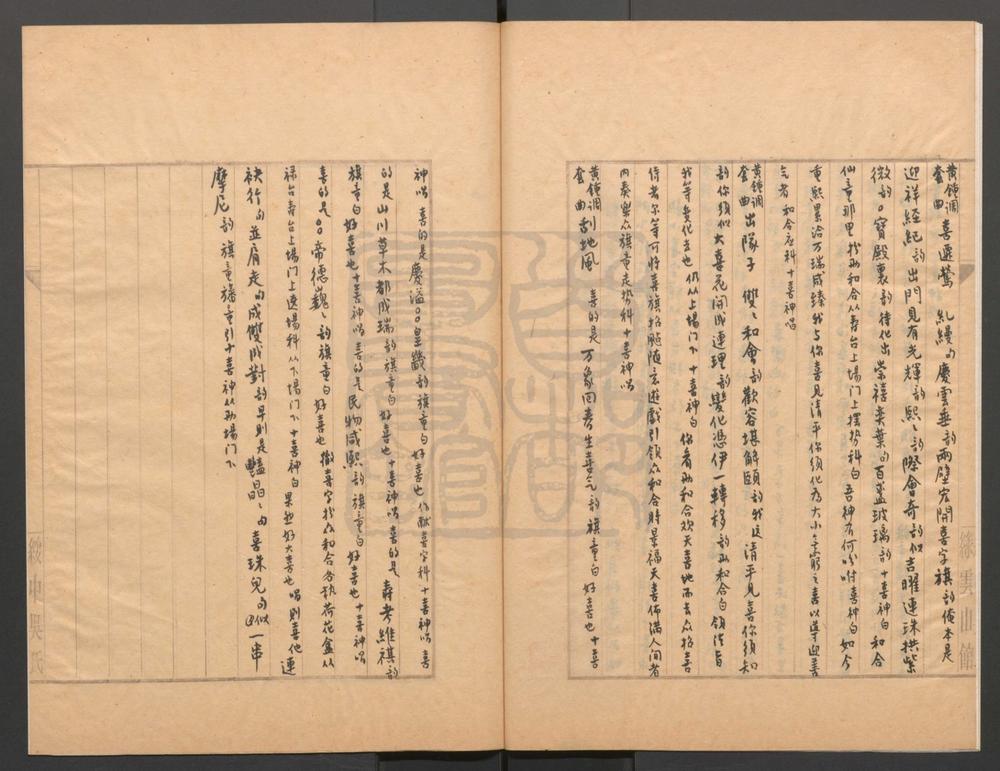 黄鍾調套曲 喜遷鶯 糺縵句慶雲垂韵兩壁宏開喜字旗韵俺本是
迎祥經紀韵出門見有光輝韵熙熙韵際會奇韵似吉曜連珠拱紫
微韵寶殿裏韵待化出崇禧奕葉句百盞玻璃韵十喜神白 和合
仙童那里 扮兩和合从寿台上場门上摆势科白 吾神有何吩咐 喜神白 如今
重熙累洽万瑞咸臻我与你喜見清平你須化為大小之喜以導迎善
气者 和合应科十喜神唱
黄鍾調套曲 出隊子 雙雙和會韵歡容堪解頤韵我這清平見喜你須知
韵你須似大喜花開成連理韵變化憑伊一轉移韵兩和合白 領法旨
我等变化去也 仍从上場门下 十喜神白 你看兩和合欢天喜地而去众招喜
侍者尔等可將喜旗招颭随意遊戲引領众和合將景福天喜佈满人间者
内奏樂众旗童走势科十喜神唱
黄鍾調套曲 刮地風 喜的是万象回春生喜气韵旗童白 好喜也 十喜
神唱 喜的是慶溢皇畿韵旗童白 好喜也 作献喜字科 十喜神唱 喜
的是山川草木都成瑞韵旗童白 好喜也 十喜神唱 喜的是寿考維祺韵
旗童白 好喜也 十喜神唱 喜的是民物咸熙韵旗童白 好喜也 十喜神唱
喜的是帝德巍巍韵旗童白 好喜也 撤喜字扮众和合各执荷花盒从
禄台寿台上場门上遶場科从下場门下 十喜神白 果然好大喜也 唱 則喜他連
袂行句並肩走句成雙成對韵早則是艷晶晶句喜珠兒句似一串
摩尼韵旗童旛童引十喜神从兩場门下
綠雲山館
綏中吳氏